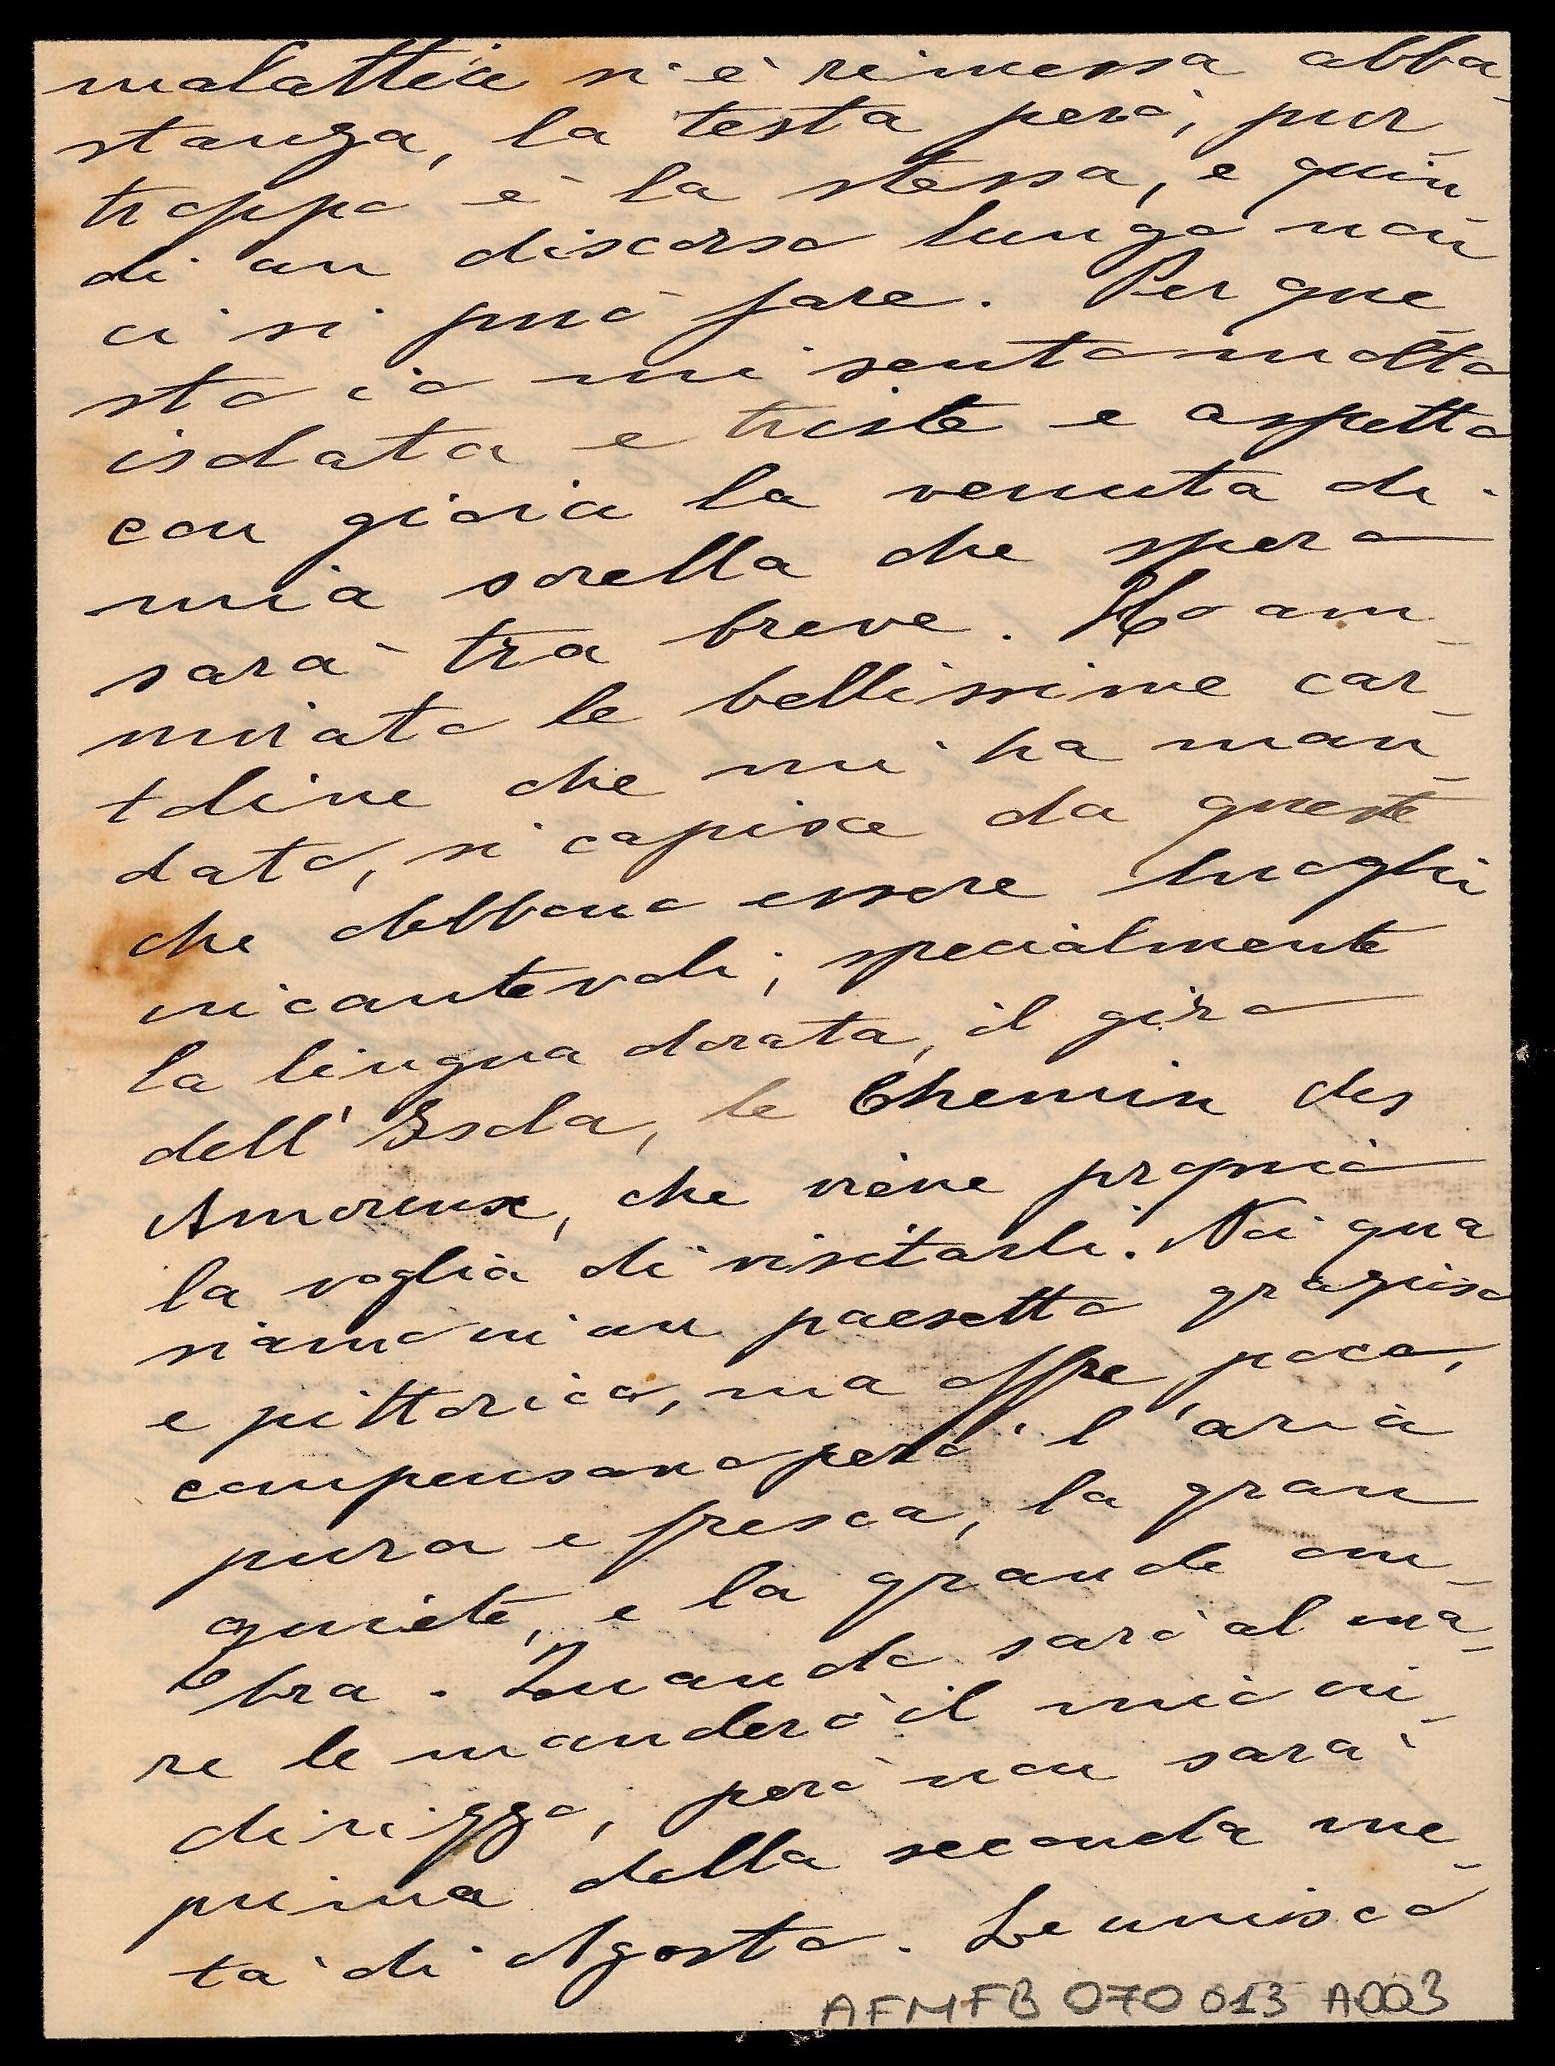 malattia si è rimessa abba_
stanza, la testa però, pur_
troppo è la stessa, e quin_
di un discorso lungo non
ci si può fare. Per que_
sto io mi sento molto
isolata e triste e aspetto
con gioia la venuta di
mia sorella che spero
sarà tra breve. Ho am_
mirato le bellissime car_
toline che mi ha man_
dato, si capisce da queste
che debbono essere luoghi
incantevoli; specialmente
la lingua dorata, il giro
dell'Isola, le Chemin des
Amoreux, che viene proprio
la voglia di visitarli. Noi qua
siamo in un paesetto grazioso
e pittorico, ma offre poco,
compensano però l'aria
pura e fresca, la gran
quiete, e la grande om_
bra. Quando sarò al ma_
re le manderò il mio in_
dirizzo, però non sarà
prima della seconda me_
tà di Agosto. Le unisco
AFMFB 070 013 A003